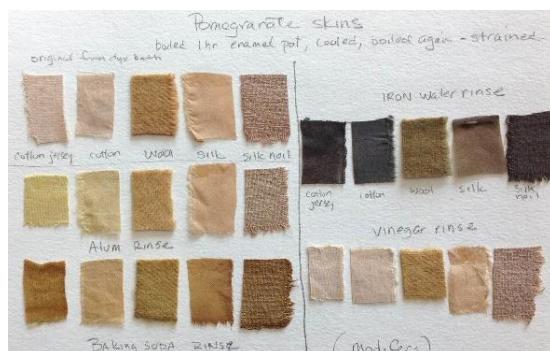 Pomegranate skins
boiled 1hr enamel pot, cooled, boiled again - strained
original from dye bath
cotton jersey cotton wool silk silk noil
Alum Rinse
BAKING SODA RINSE
IRON water rinse
cotton jersey cotton wool silk silk noil
Vinegar rinse
(Modifiers)